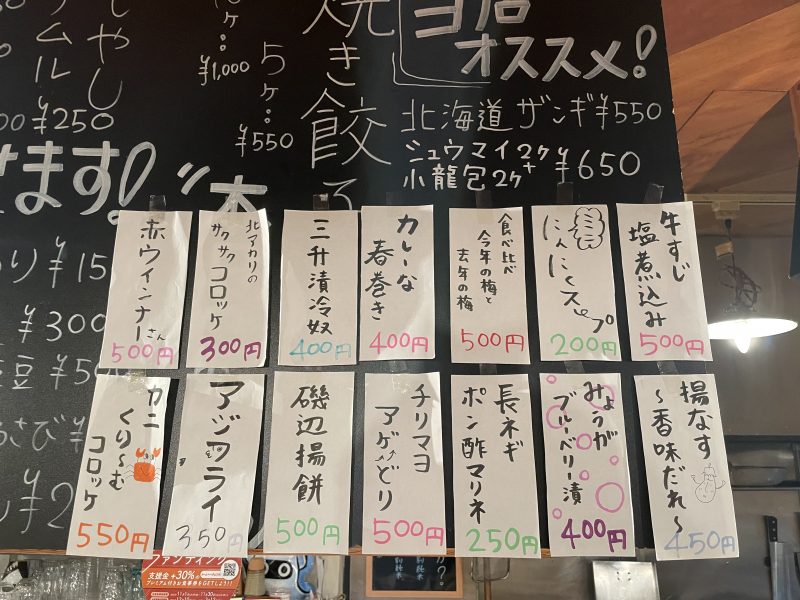 当店
オススメ!
北海道ザンギ¥550
シュウマイ2ケ
小龍包2ケ+
¥650
焼き餃子
¥1,000
5ケ…
¥550
ます!
¥250
赤ウインナーさん
500円
北アカリの
サクサクコロッケ
300円
三升漬冷奴
400円
カレーな
春巻き
400円
食べ比べ
今年の梅と
去年の梅
500円
にんにくスープ
200円
牛すじ
塩煮込み
500円
カニ
くり〜む
コロッケ
550円
アジフライ
350円
磯辺揚餅
500円
チリマヨ
アゲどり
500円
長ネギ
ポン酢マリネ
250円
みょうが
ブルーベリー漬
400円
揚なす
〜香味だれ〜
450円
支援金+30%の
プレミアム付きお食事券をGETしよう!!